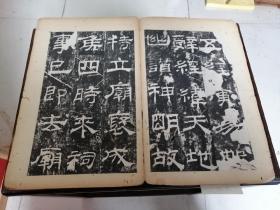 五經演易繫
辭經緯天地
幽讚神朙故
特立廟褒成
侯四時來祠
事已即去廟